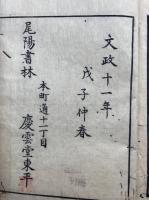 文政十一年
戊子仲春
本町通十二丁目
尾陽書林 慶雲堂東平